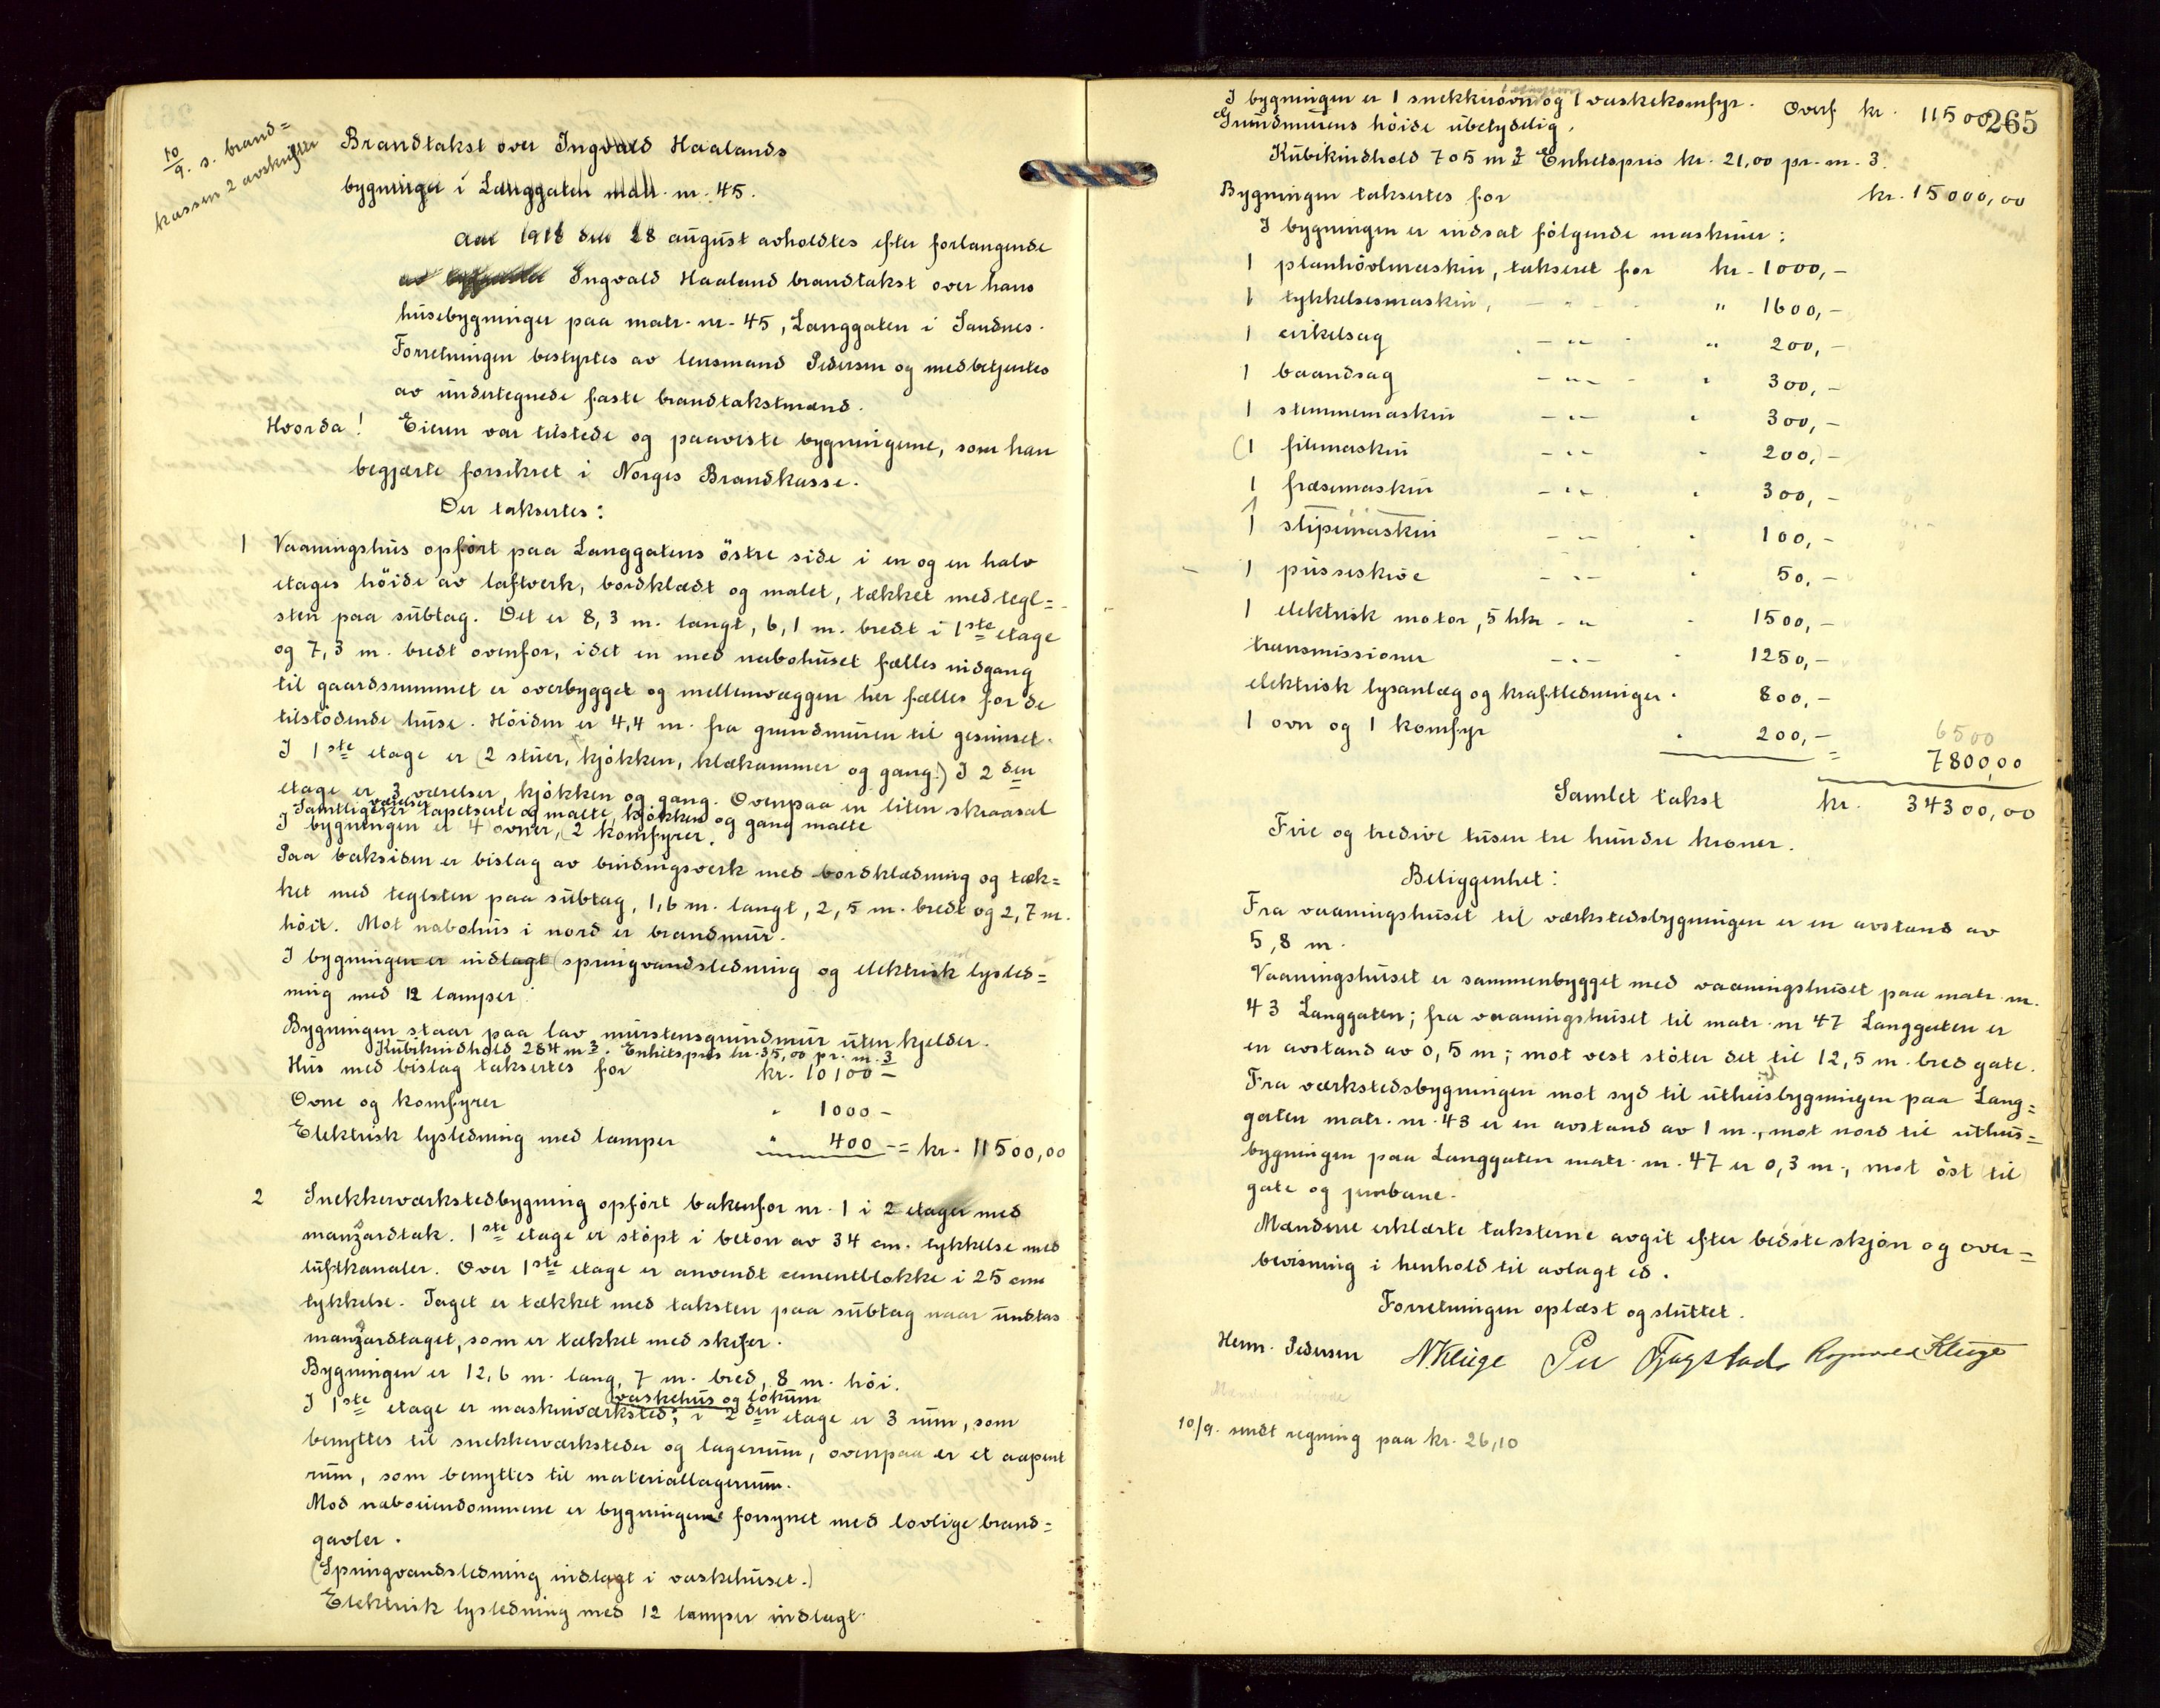 10/9. s. brand=
kassen 2 avskrifter
Brandtakst over Ingvald Haalands
bygninger i Langgaten matr. nr. 45.
Aar 1918 den 28 august avholdtes efter forlangende
av Ingvald Haaland brandtakst over hans
husebygninger paa matr. nr. 45, Langgaten i Sandnes.
Forretningen bestyrtes av lensmand Pedersen og medbetjentes
av undertegnede faste brandtakstmænd.
Hvorda! Eieren var tilstede og paaviste bygningerne, som han
begjærte forsikret i Norges Brandkasse.
Der taksertes:
1 Vaaningshus opført paa Langgatens østre side i en og en halv
etages høide av laftverk, bordklædt og malet, tækket med tegl=
sten paa subtag. Det er 8,3 m. langt, 6,1 m. bredt i 1ste etage
og 7,3 m. bredt ovenfor, idet en med nabohuset fælles nidgang
til gaardsrummet er overbygget og mellemvæggen her fælles for de
tilstødende huse. Høiden er 4,4 m. fra grundmuren til gesimset.
I 1ste etage er (2 stuer, kjøkken, klækammer og gang.) I 2den
etage er 3 værelser, kjøkken og gang. Ovenpaa en liten skraasal
Samtlige værelser er tapetserte og malte, kjøkken og gang malte
I bygningen er 4 ovner, (2 komfyrer.
Paa baksiden er bislag av bindingsverk med bordklædning og tæk=
ket med teglsten paa subtag, 1,6 m. langt, 2,5 m. bredt og 2,7 m.
høit. Mot nabohus i nord er brandmur.
I bygningen er indlagt (springvandsledning og elektrisk lysled=
ning med 12 lamper.
Bygningen staar paa lav murstensgrundmur uten kjelder.
Kubikindhold 284 m3. Enhetspris kr. 35,00 pr. m.3
Hus med bislag taksertes for kr. 10100 –
Ovne og komfyrer " 1000 –
Elektrisk lysledning med lamper " 400 – = kr. 11500,00
2 Snekkerværkstedbygning opført bakenfor nr. 1 i 2 etager med
manzardtak. 1ste etage er støpt i beton av 34 cm. tykkelse med
luftkanaler. Over 1ste etage er anvendt cementblokke i 25 cm
tykkelse. Taget er tækket med taksten paa subtag naar undtas
manzardtaget, som er tækket med skifer.
Bygningen er 12,6 m. lang, 7 m. bred, 8 m. høi.
vaskehus og lokum
I 1ste etage er maskinværksted; i 2den etage er 3 rum, som
benyttes til snekkerværksteder og lagerrum, ovenpaa er et aapent
rum, som benyttes til materiallagerrum.
Mod naboeiendommene er bygningerne forsynet med lovlige brand=
gavler.
(Springvandsledning indlagt i vaskehuset.)
Elektrisk lysledning med 12 lamper indlagt.
265
I bygningen er 1 snekkerovn og 1 vaskekomfyr. Overf. kr. 11500
Grundmurens høide ubetydelig.
Kubikindhold 705 m3 Enhetspris kr. 21,00 pr. m. 3.
Bygningen taksertes for kr. 15000,00
I bygningen er indsat følgende maskiner:
1 planhøvlmaskin, takseret for kr. 1000,–
1 tykkelsesmaskin, – " – " 1600,–
1 cirkelsag – " – " 200,–
1 baandsag – " – " 300,–
1 stemmemaskin – " – " 300,–
(1 filemaskin – " – " 200,)–
1 fræsemaskin – " – " 300,–
1 slipemaskin – " – " 100,–
1 pusseskive – " – " 50,–
1 elektrisk motor, 5 hkr – " – " 1500,–
transmissioner – " – " 1250,–
elektrisk lysanlæg og kraftledninger " 800,–
1 ovn og 1 komfyr " 200,–
6500
= 7800,00
Samlet takst kr. 34300,00
Fire og tredive tusen tre hundre kroner.
Beliggenhet:
Fra vaaningshuset til værkstedsbygningen er en avstand av
5,8 m.
Vaaningshuset er sammenbygget med vaaningshuset paa matr. nr.
43 Langgaten; fra vaaningshuset til matr. nr 47 Langgaten er
en avstand av 0,5 m; mot vest støter det til 12,5 m. bred gate.
Fra værkstedsbygningen mot syd til uthusbygningen paa Lang=
gaten matr. nr. 43 er en avstand av 1 m., mot nord til uthus=
bygningen paa Langgaten matr. nr. 47 er 0,3 m., mot øst til
gate og jernbane.
Mændene erklærte taksterne avgit efter bedste skjøn og over=
bevisning i henhold til avlagt ed.
Forretningen oplæst og sluttet.
Herm. Pedersen N Kluge Per Fjogstad Rognvald Kluge
10/9. sendt regning paa kr. 26,10